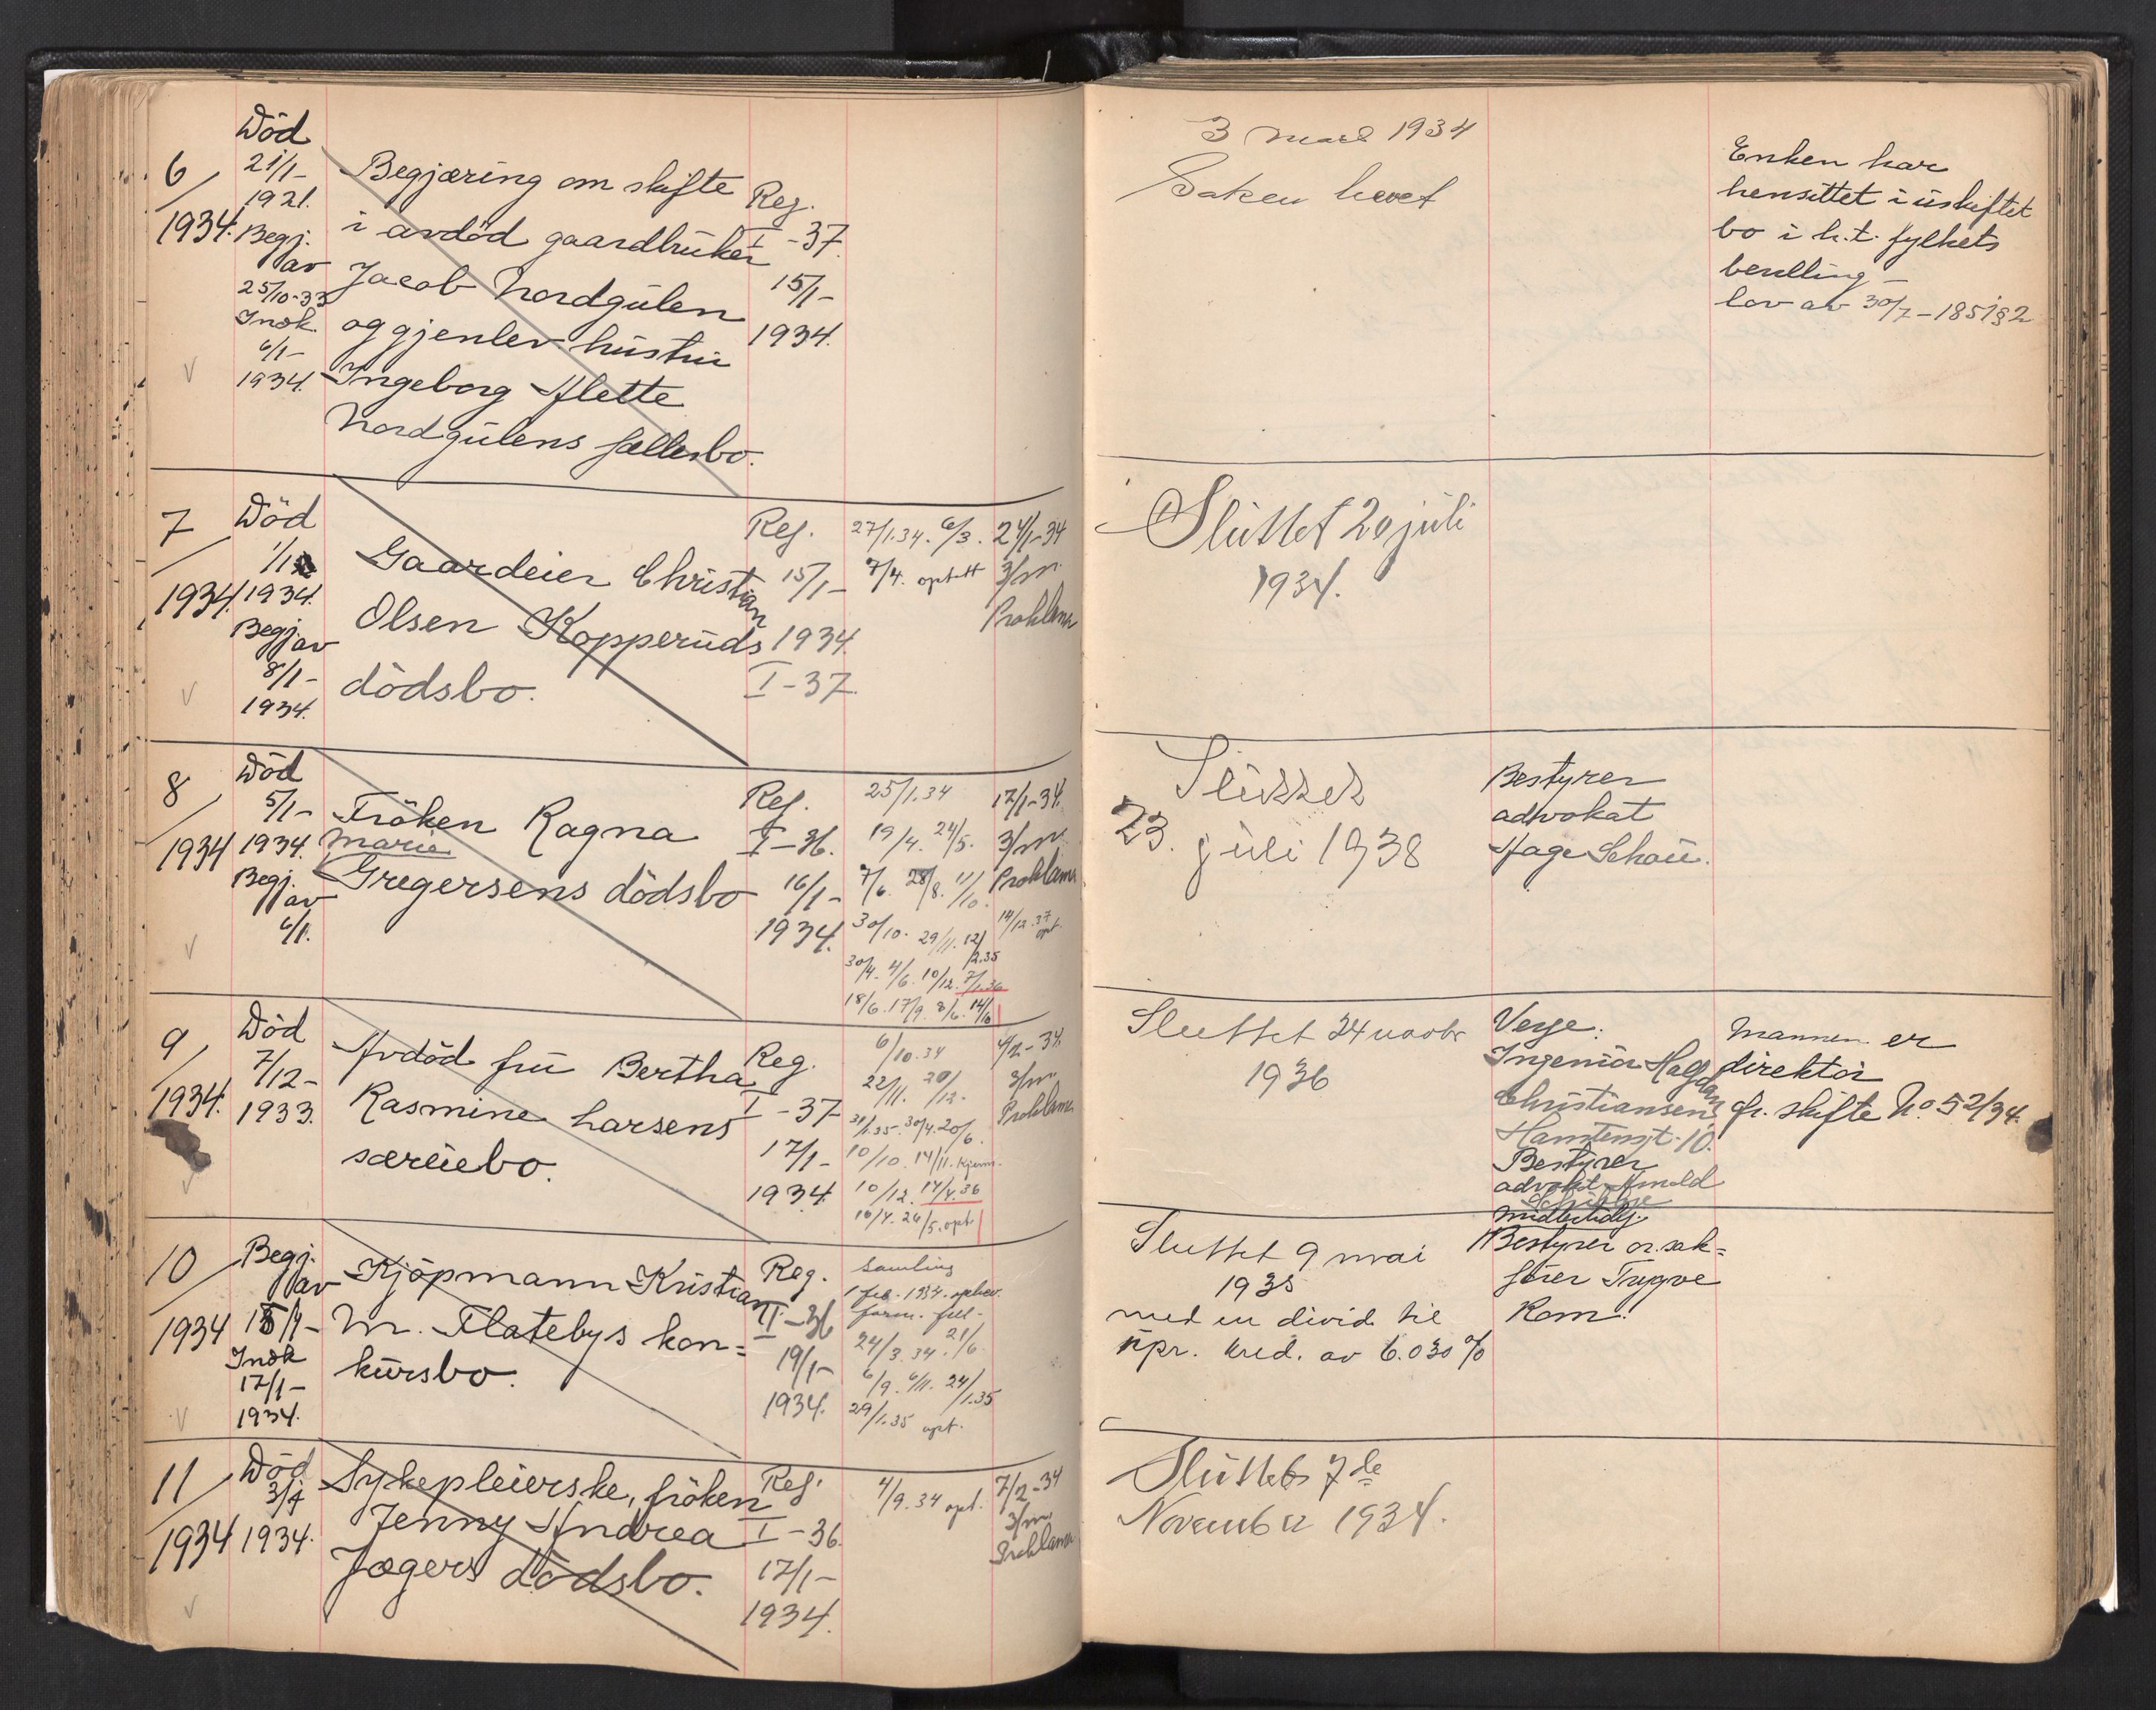 6/1934.
Död
21/1-
1921.
Begj.
av
25/10-33
Innk.
6/1-
1934.
Begjæring om skifte
i avdöd gaardbruker
Jacob Nordgulen
og gjenlev hustru
Ingeborg Alette
Nordgulens fællesbo.
Reg.
I-37.
15/1-
1934.
3 mars 1934
Saken hevet
Enken har
hensittet i uskiftet
bo i h.t. fylkets
bevilling -
lov av 30/7-1851 § 2
7/1934.
Död
1/1
1934.
Begj.
av
8/1-
1934.
Gaardeier Christian
Olsen Kopperuds
dödsbo.
Reg.
15/1-
1934.
I-37.
27/1.34. 6/3.
7/4. optatt
24/1-34
3/m.
Proklama
Sluttet 20 juli
1934.
8/1934
Död
5/1-
1934.
Begj.
av
6/1.
Fröken Ragna
Marie
Gregersens dödsbo
Reg.
I-36.
16/1-
1934.
25/1.34
19/4. 24/5.
7/6. 28/8. 11/10.
30/10. 29/11. 12/2.35
30/4. 4/6. 10/12. 7/1.36
18/6. 17/9. 8/6. 14/10
17/1-34.
3/m.
Proklama
14/12.37
opt.
Sluttet
23. juli 1938
Bestyrer
advokat
Aage Schou.
9/1934.
Död
7/12-
1933.
Avdöd fru Bertha
Rasmine Larsens
særeiebo.
Reg.
I-37
17/1-
1934.
6/10.34
22/11. 20/12.
31/1.35. 30/4. 20/6.
10/10. 14/11. kjenn.
10/12. 14/4.36
16/4. 26/5. opt
4/2-34.
3/m.
Proklama
Sluttet 24 novbr
1936
Verge:
Ingeniör Halfdan
Christiansen,
Hansteensgt. 10.
Bestyrer
advokat Arnold
Mannen er
direktör
cfr. skifte No. 52/34.
10/1934
Begj.
av
15/1-
Innk
17/1-
1934.
Kjöpmann Kristian
M. Flatebys kon=
kursbo.
Reg.
I-36
19/1-
1934.
Samling
1 feb. 1934. ophev.
form. fell-
24/3.34. 21/6.
6/9. 6/11. 24/1.35
29/1.35 opt.
Sluttet 9 mai
1935
med en divid. til
upr. kred. av 6.030 %
Midlertidig
Bestyrer or. sak=
förer Trygve
Rom.
11/1934
Död
3/1
1934.
Sykepleierske, fröken
Jenny Andrea
Jægers dödsbo.
Reg.
I-36.
17/1-
1934.
4/9.34 opt.
7/2-34
3/m.
Proklama
Sluttet 7de
November 1934.